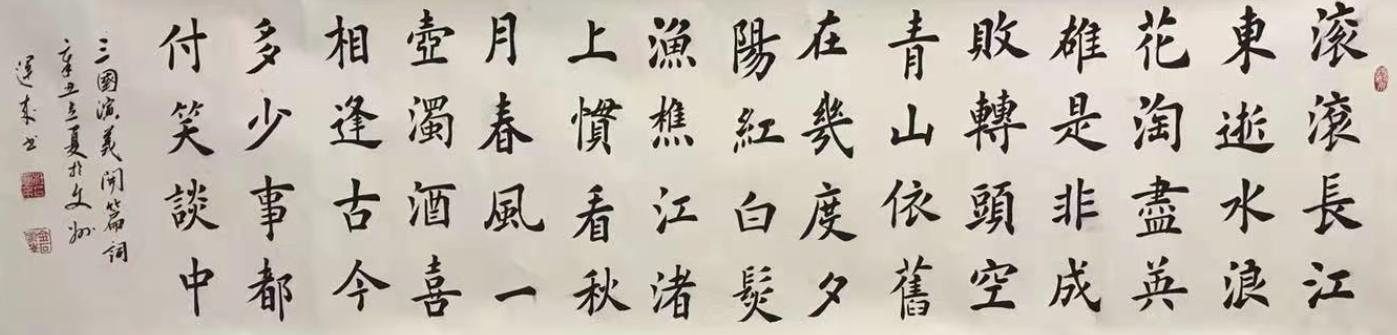 滚滾長江
東逝水浪
花淘盡英
雄是非成
敗轉頭空
青山依舊
在幾度夕
陽紅白髮
漁樵江渚
上慣看秋
月春風一
壺濁酒喜
相逢古今
多少事都
付笑談中
三國演義開篇詞
辛丑立夏於文州